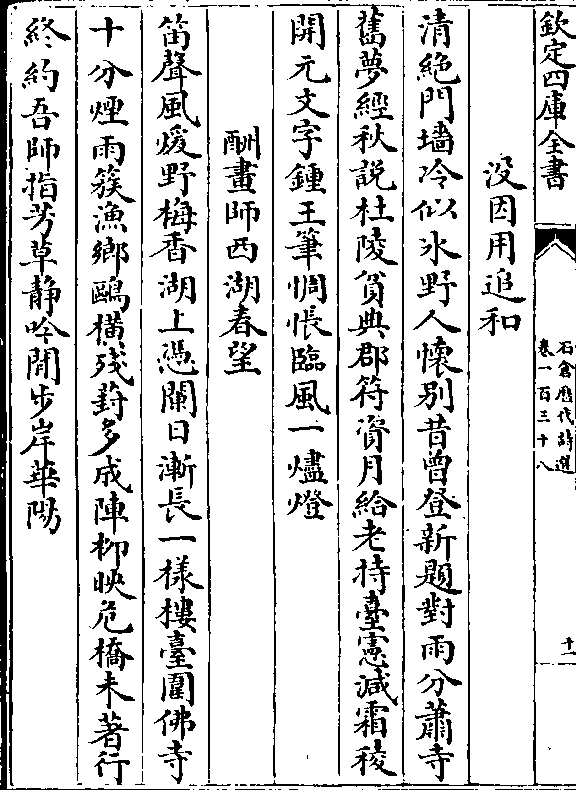 欽定四庫全書
石倉歷代詩選
卷一百三十八
十一
没因用追和
清絶門墻冷似氷野人懷别昔曾登新題對雨分蕭寺
舊夢經秋説杜陵貧典郡符資月給老持臺憲減霜稜
開元文字鍾王筆惆悵臨風一燼燈
酬畫師西湖春望
笛聲風煖野梅香湖上憑闌日漸長一様樓臺圍佛寺
十分煙雨簇漁鄉鷗横殘葑多成陣柳映危橋未著行
終約吾師指芳草静吟閒步岸華陽